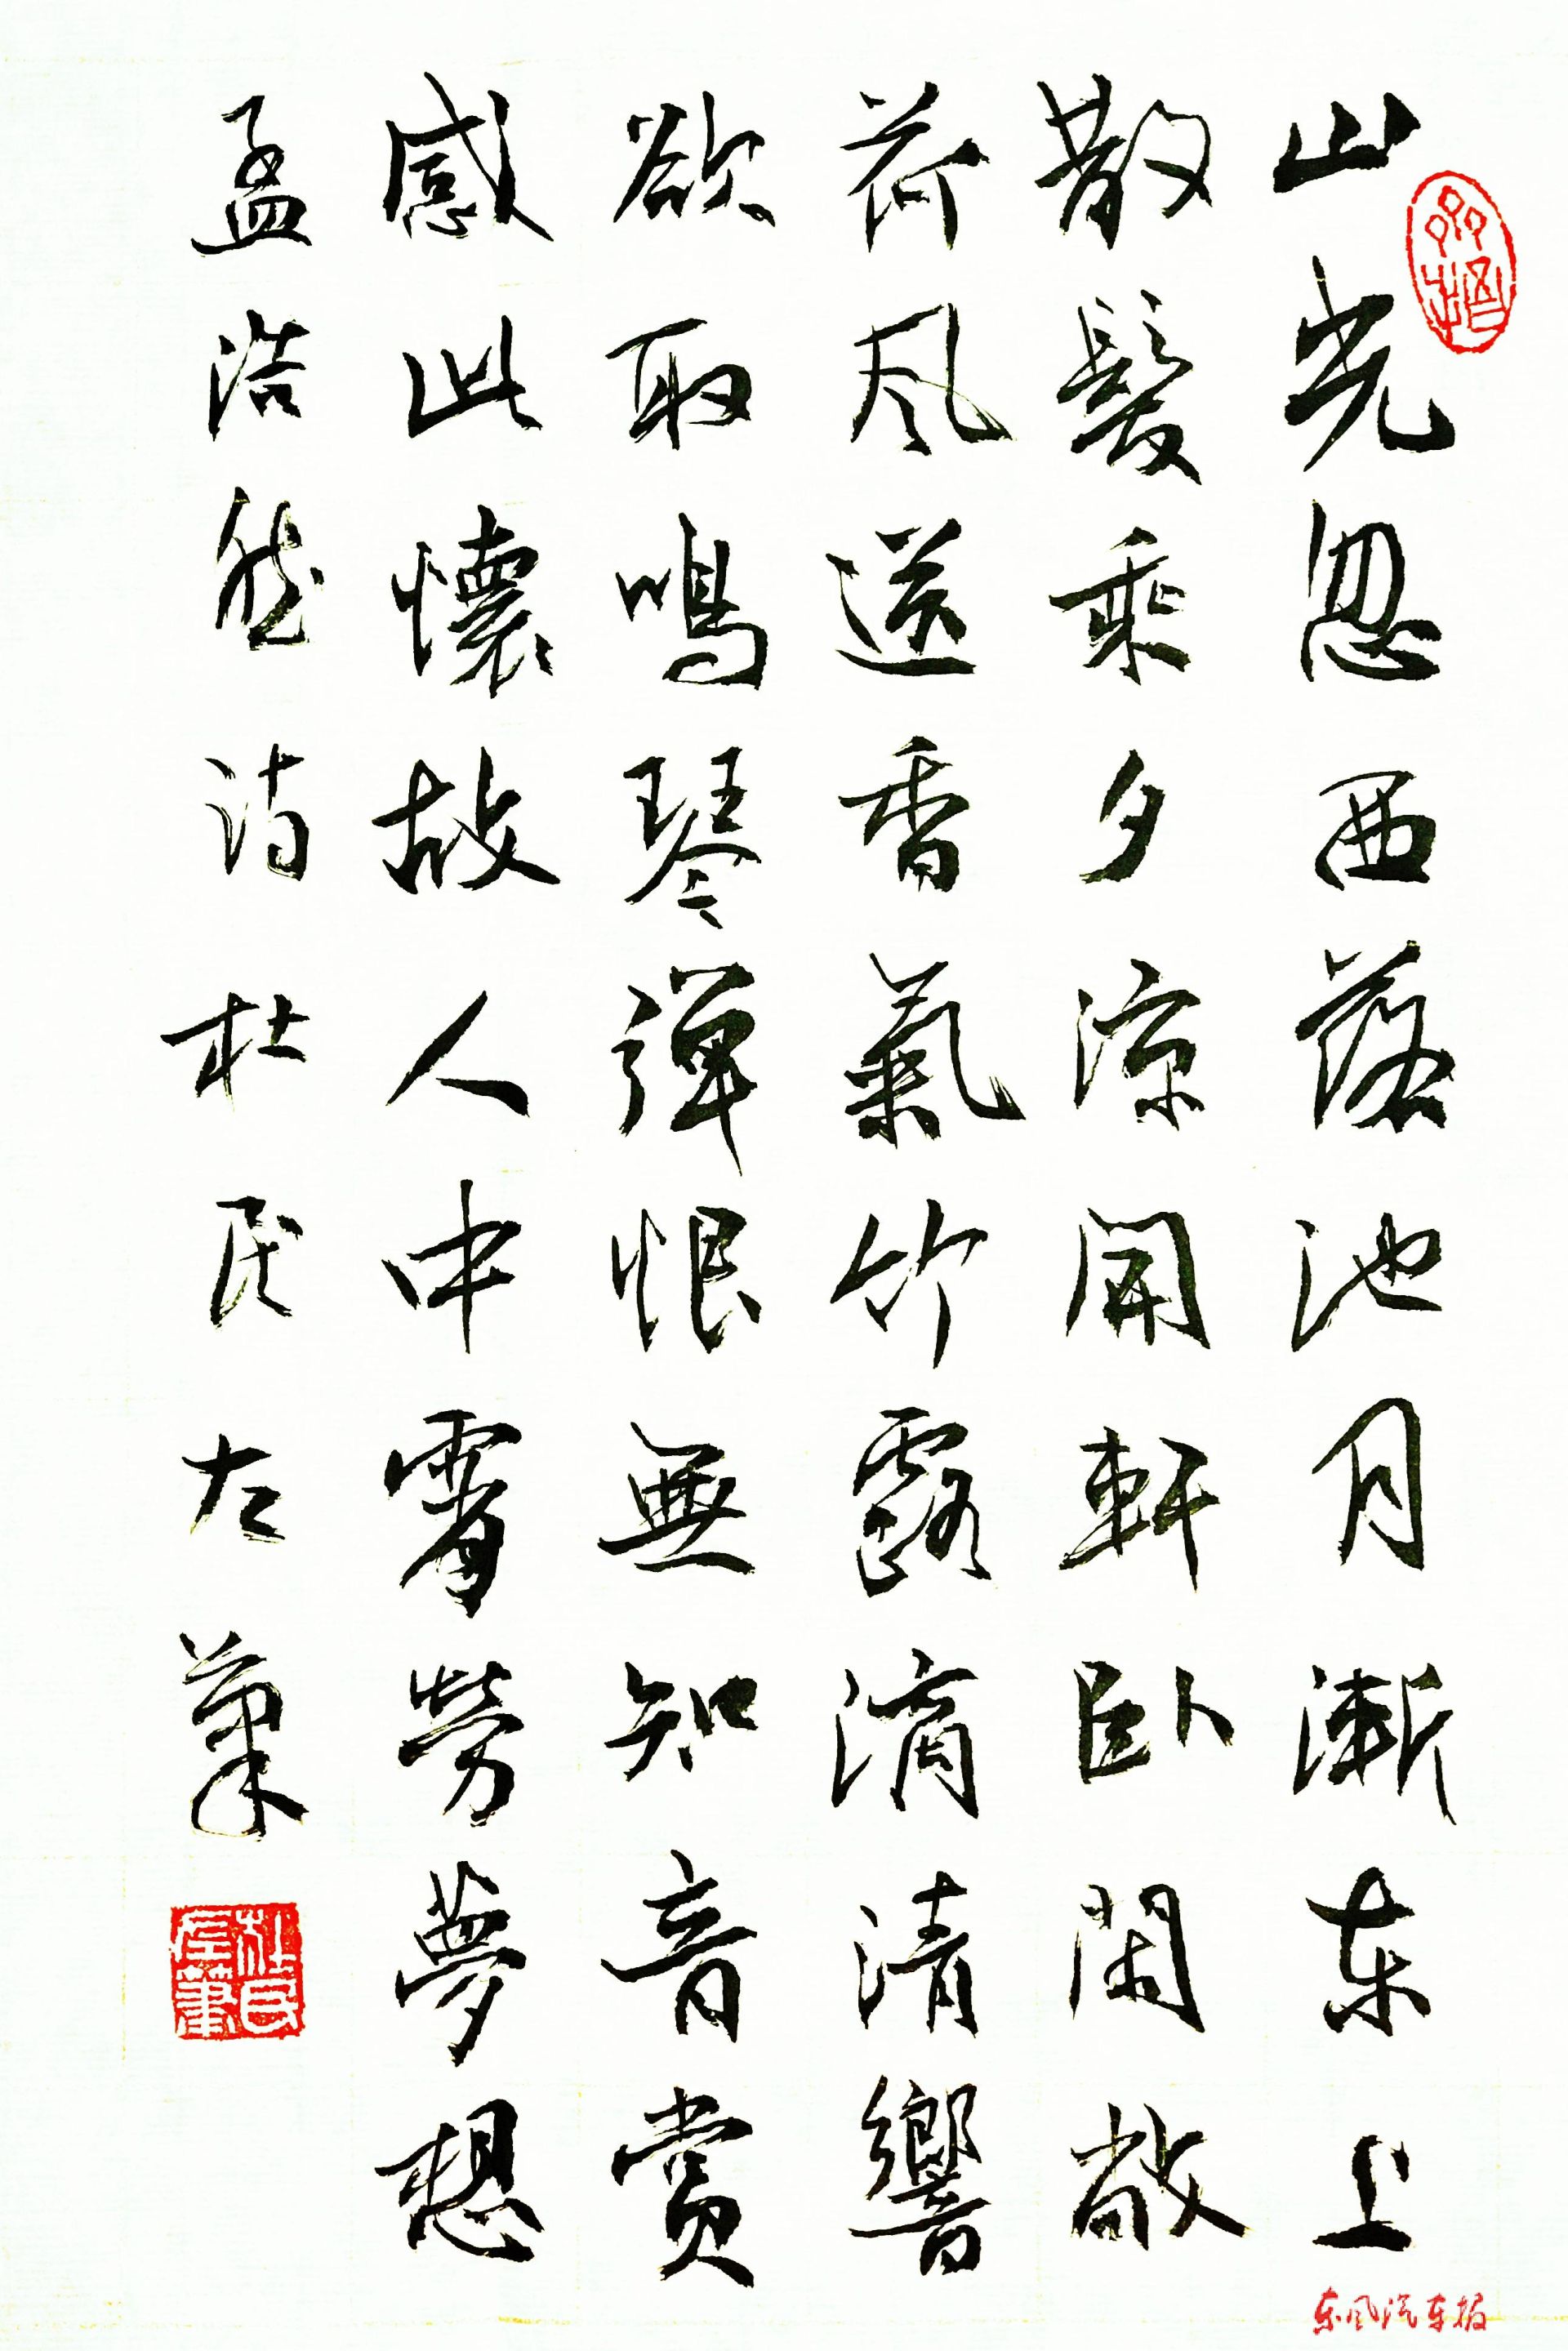 山光忽西落池月漸东上
散髮乘夕涼開軒卧閑敞
荷风送香氣竹露滴清響
欲取鳴琴彈恨無知音賞
感此懷故人中宵勞夢想
孟浩然诗杜民左筆
杜民左筆
东风汽车报